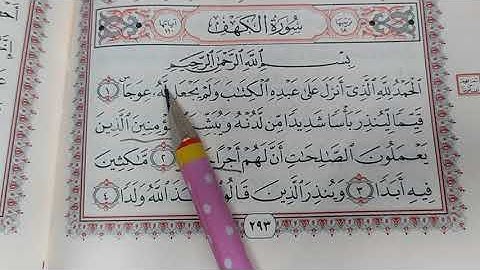 سُورَةُ الكَهْفِ
بِسْمِ اللَّهِ الرَّحْمَٰنِ الرَّحِيمِ
الْحَمْدُ لِلَّهِ الَّذِي أَنزَلَ عَلَىٰ عَبْدِهِ الْكِتَابَ وَلَمْ يَجْعَل لَّهُ عِوَجًا ۜ ١
قَيِّمًا لِّيُنذِرَ بَأْسًا شَدِيدًا مِّن لَّدُنْهُ وَيُبَشِّرَ الَّذِينَ
يَعْمَلُونَ الصَّالِحَاتِ أَنَّ لَهُمْ أَجْرًا ٢ مَّاكِثِينَ
فِيهِ أَبَدًا ٣ وَيُنذِرَ الَّذِينَ قَالُوا اللَّهُ وَلَدًا ٤
٢٩٣